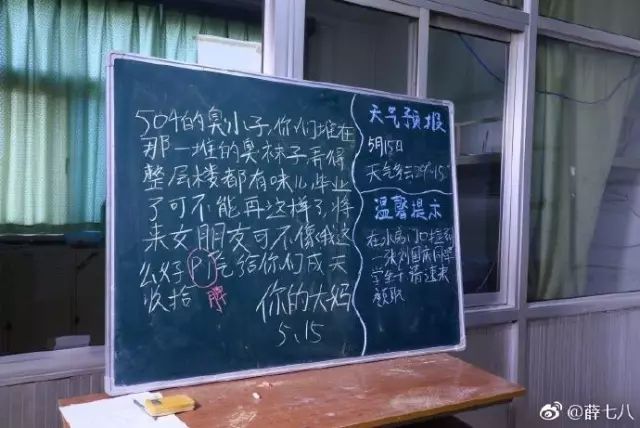 504的臭小子,你们堆在
那一堆的臭袜子弄得
整层楼都有味儿,毕业
了可不能再这样了,将
来女朋友可不像我这
么好PI气给你们成天
脾
收拾
你的大妈
5.15
天气预报
5月15日
天气多云29°-15°
温馨提示
在水房门口捡到
一张刘国庆同学
学生卡 请速来
领取
@薛七八